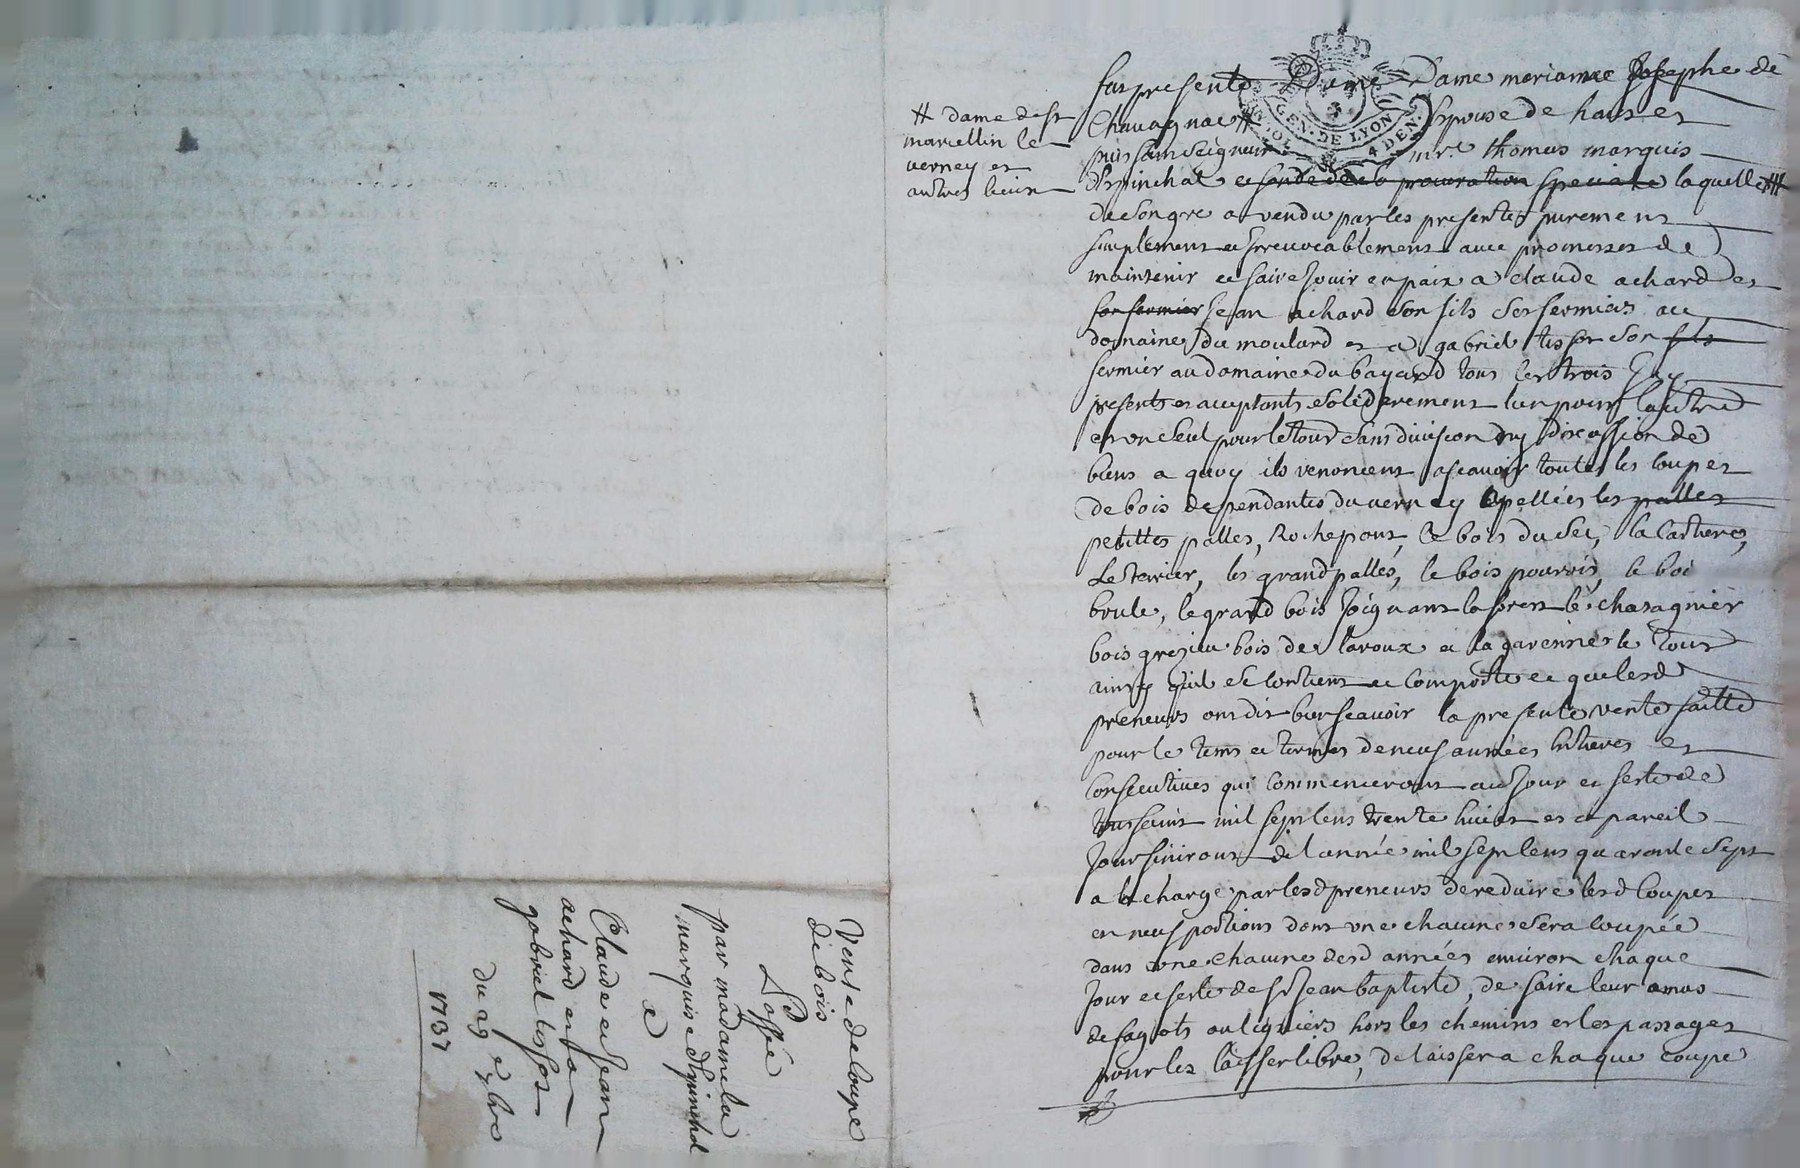 fus presente Dame Dame mariamne Josephe de
Chavagnac # Espouse de haut et
puissant Seigneur mre. thomas marquis
d'Espinchal et fondée de sa procuration speciale laquelle #
de Son gre a vendu par les presentes purement
simplement et Irrevocablement avec promesses de
maintenir et faire Jouir en paix a claude achard et
son fermier Jean achard Son fils Ses fermiers au
domaine du moulard et a gabriel tissot Son fils
fermier au domaine du bayard tous les trois Icy
presents et acceptants Solidairement lun pour lautre
et un Seul pour le tout Sans division ny discussion de
biens a quoy ils renoncent ascavoir toutes les coupes
de bois dependantes du verney apellées les palles
petittes palles, Rochepont, le bois du Sec, la Cartiere,
Le terrier, les grand palles, le bois pourvoir, le boi
brule, le grand bois Joignant la forest le chasagnier
bois grezieu bois de laroux et la garenne le tout
ainsy quil Se Contient et Comporte et que lesd
preneurs ont dit bien Scavoir la presente vente faitte
pour le tems et termes de neuf années Entieres et
Consecutives qui Commenceront au Jour et feste de
toussaint mil Sept Cens trente huict et a pareil
Jour finiront de l'année mil Sept Cens quarante Sept
a la charge par lesd preneurs de reduire lesd Coupes
en neuf portions dont une chacune Sera coupée
dans une chacune desd années environ chaque
Jour et feste de St Jean baptiste, de faire leur amas
de fagots ou ligniers hors les chemins et les passages
pour les laisser libre, de laisser a chaque coupe
# dame de St
marcellin le
verney et
autres lieux
GEN. DE LYON
4 DEN.
Vente de coupe
de bois
Passée
par madame la
marquise d'Espinchal
a
Claude et Jean
achard et a
gabriel tissot
du 29 e 7bre
1737